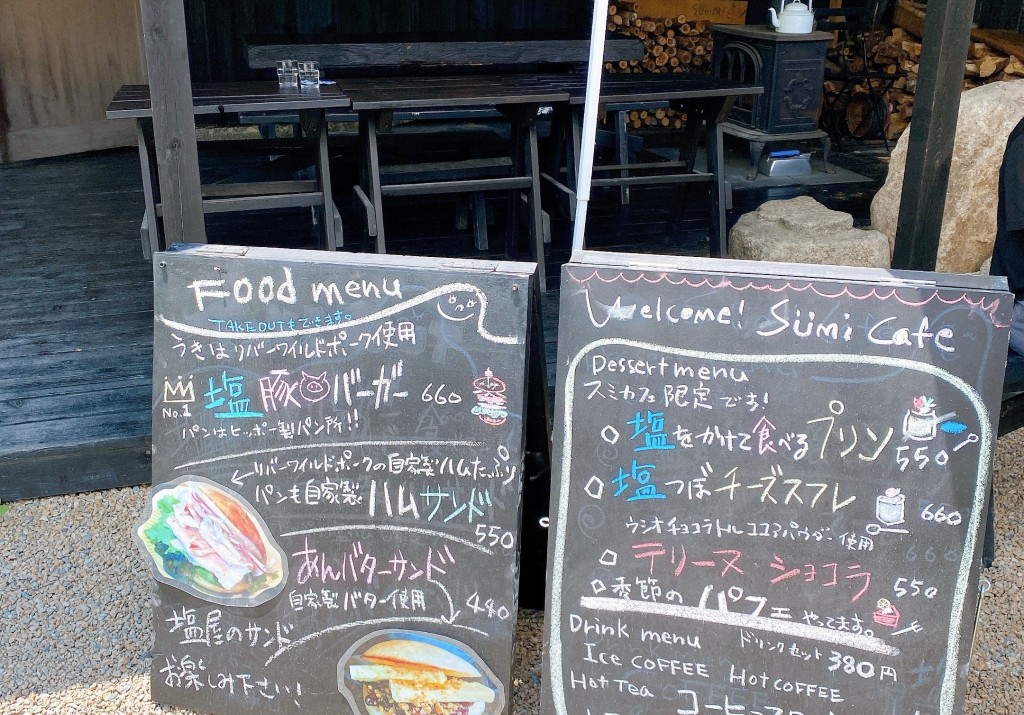 Food menu
TAKE OUTもできます。
うきは リバーワイルドポーク使用
No.1
塩豚バーガー 660
パンはヒッポー製パン所!!
リバーワイルドポークの自家製ハムたっぷり
パンも自家製 ハムサンド
550
あんバターサンド
自家製バター使用 440
塩屋のサンド
お楽しみ下さい!
Welcome! Sumi Cafe
Dessert menu
スミカフェ限定です!
塩をかけて食べるプリン
550
塩つぼチーズスフレ
660
ウシオチョコラトル ココアパウダー使用
テリーヌ・ショコラ 550
季節のパフェ やってます。
Drink menu ドリンクセット 380円
Ice COFFEE Hot COFFEE
Hot Tea